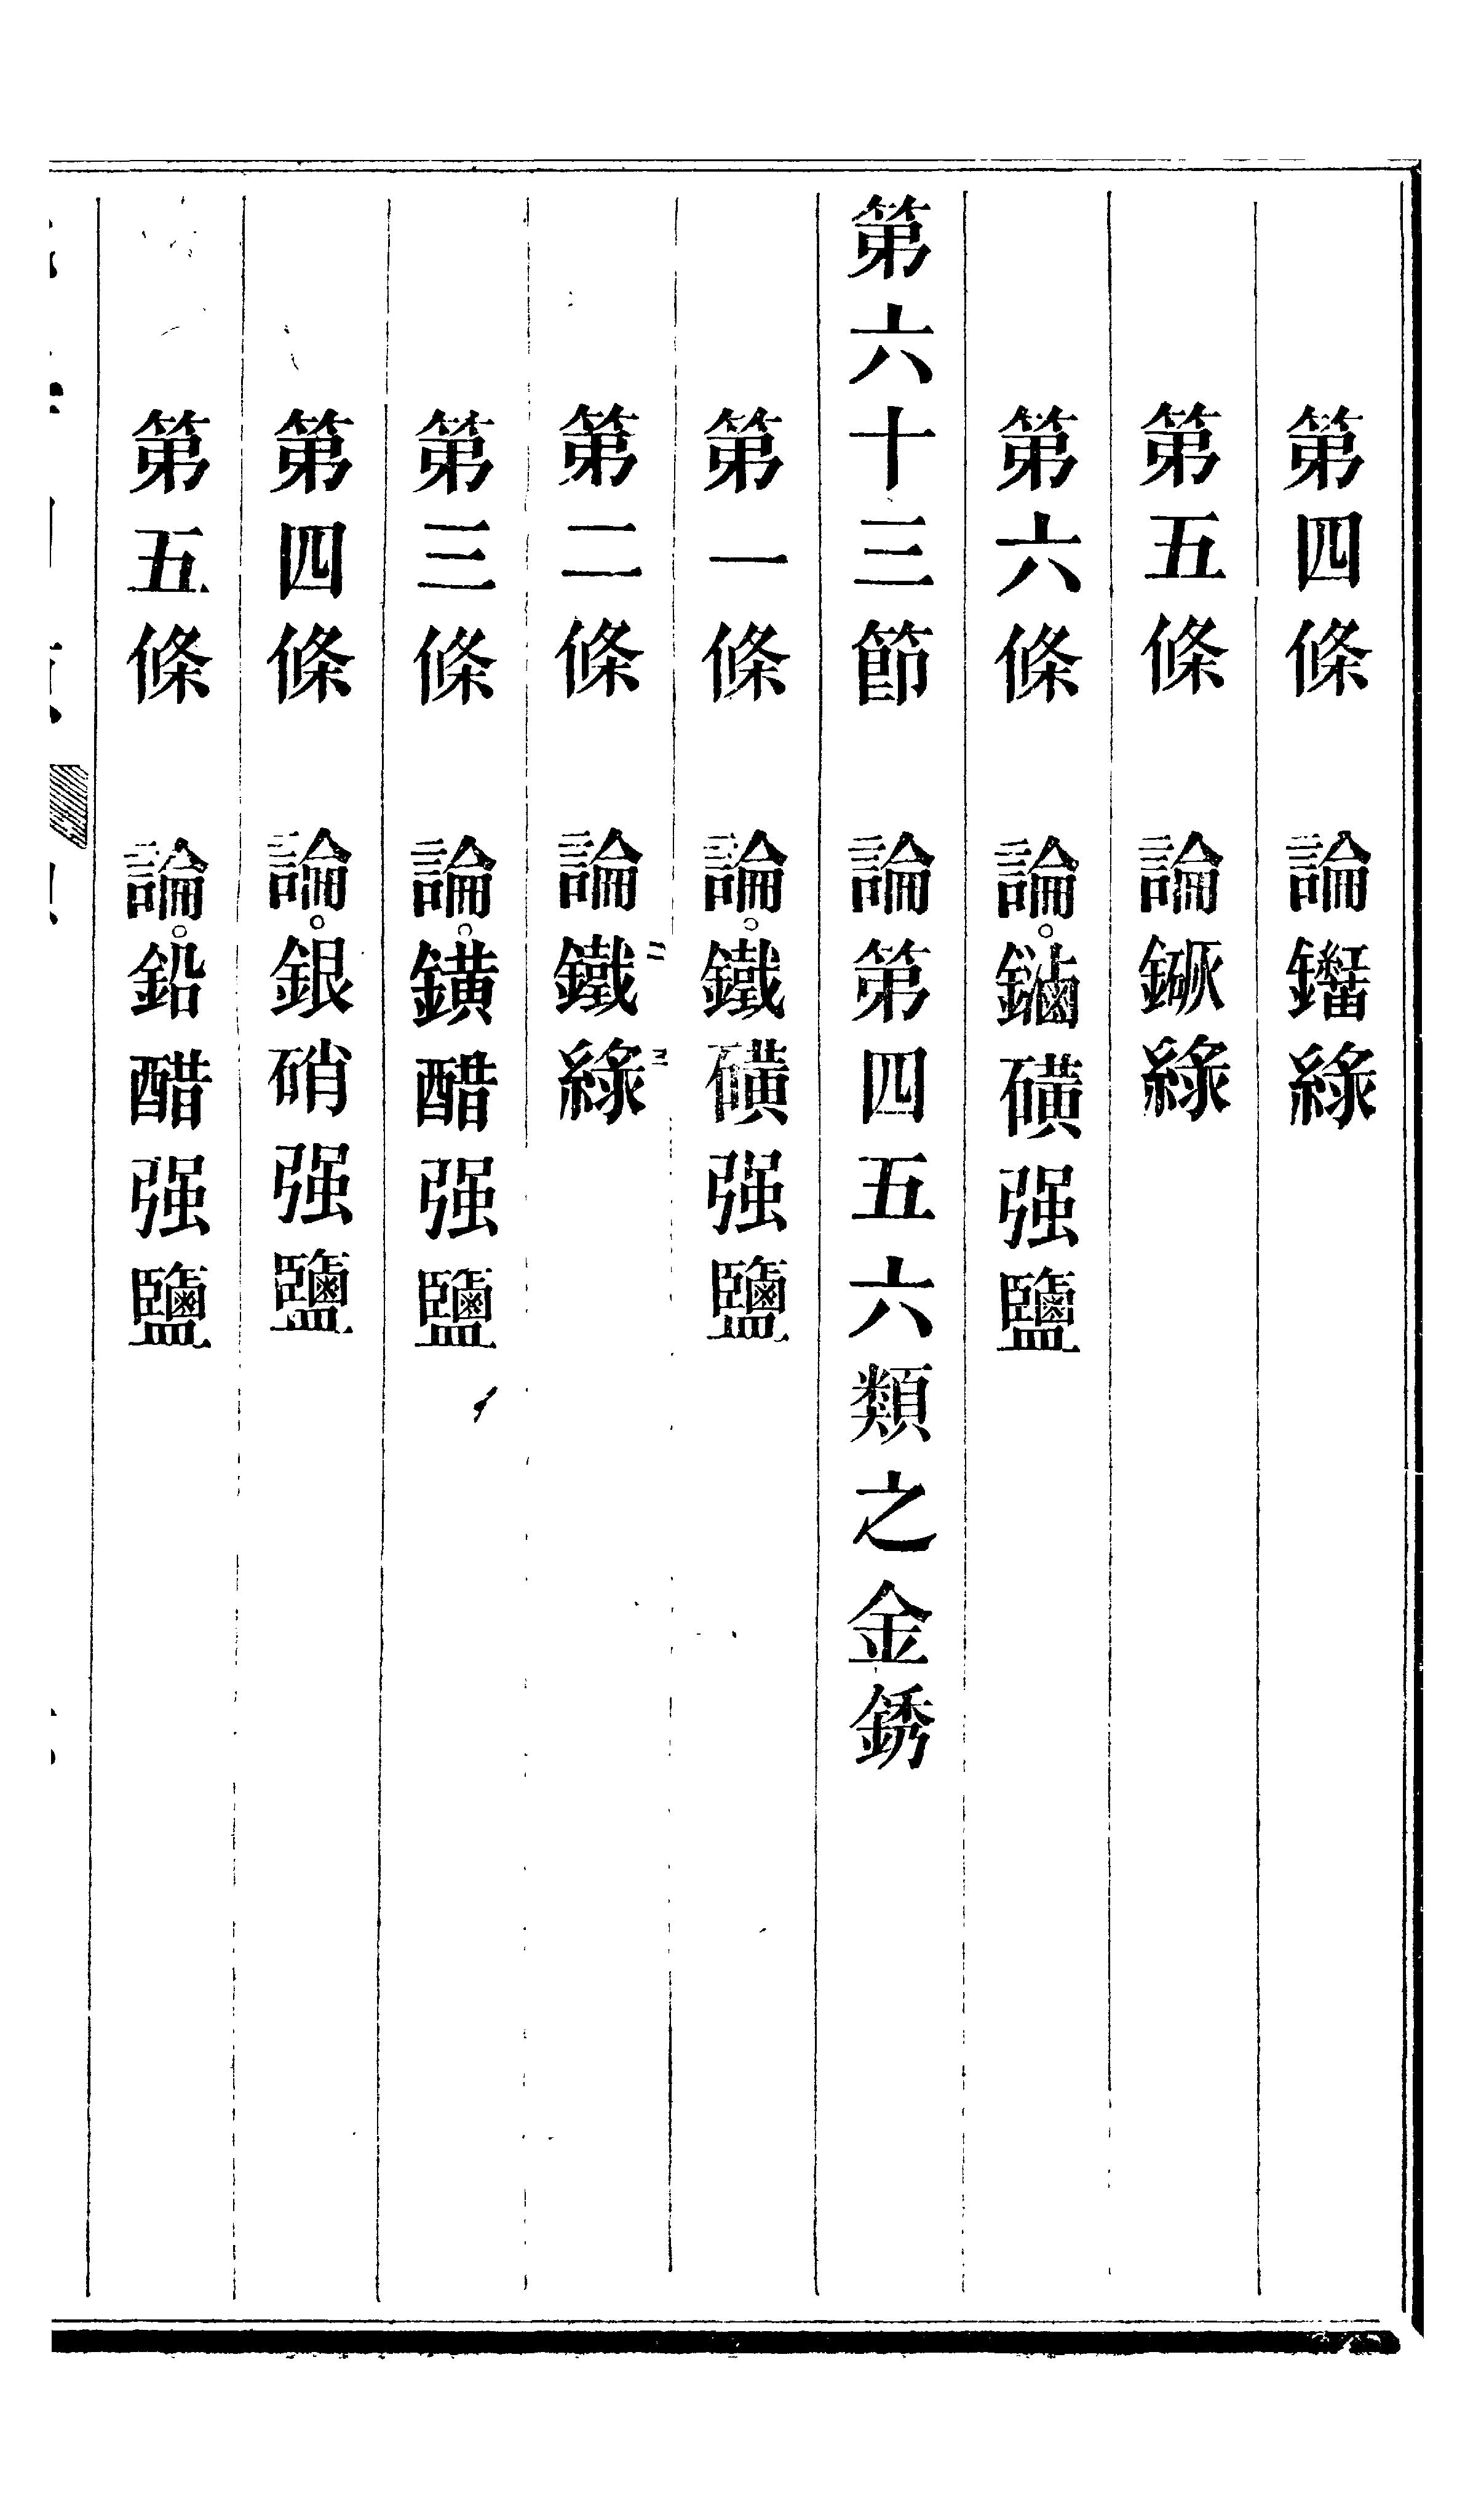 第四條 論綠
第五條 論綠
第六條 論磺强鹽
第六十三節 論第四五六類之金銹
第一條 論鐵磺强鹽
第二條 論鐵二綠三
第三條 論鐄醋强鹽
第四條 論銀硝强鹽
第五條 論鉛醋强鹽